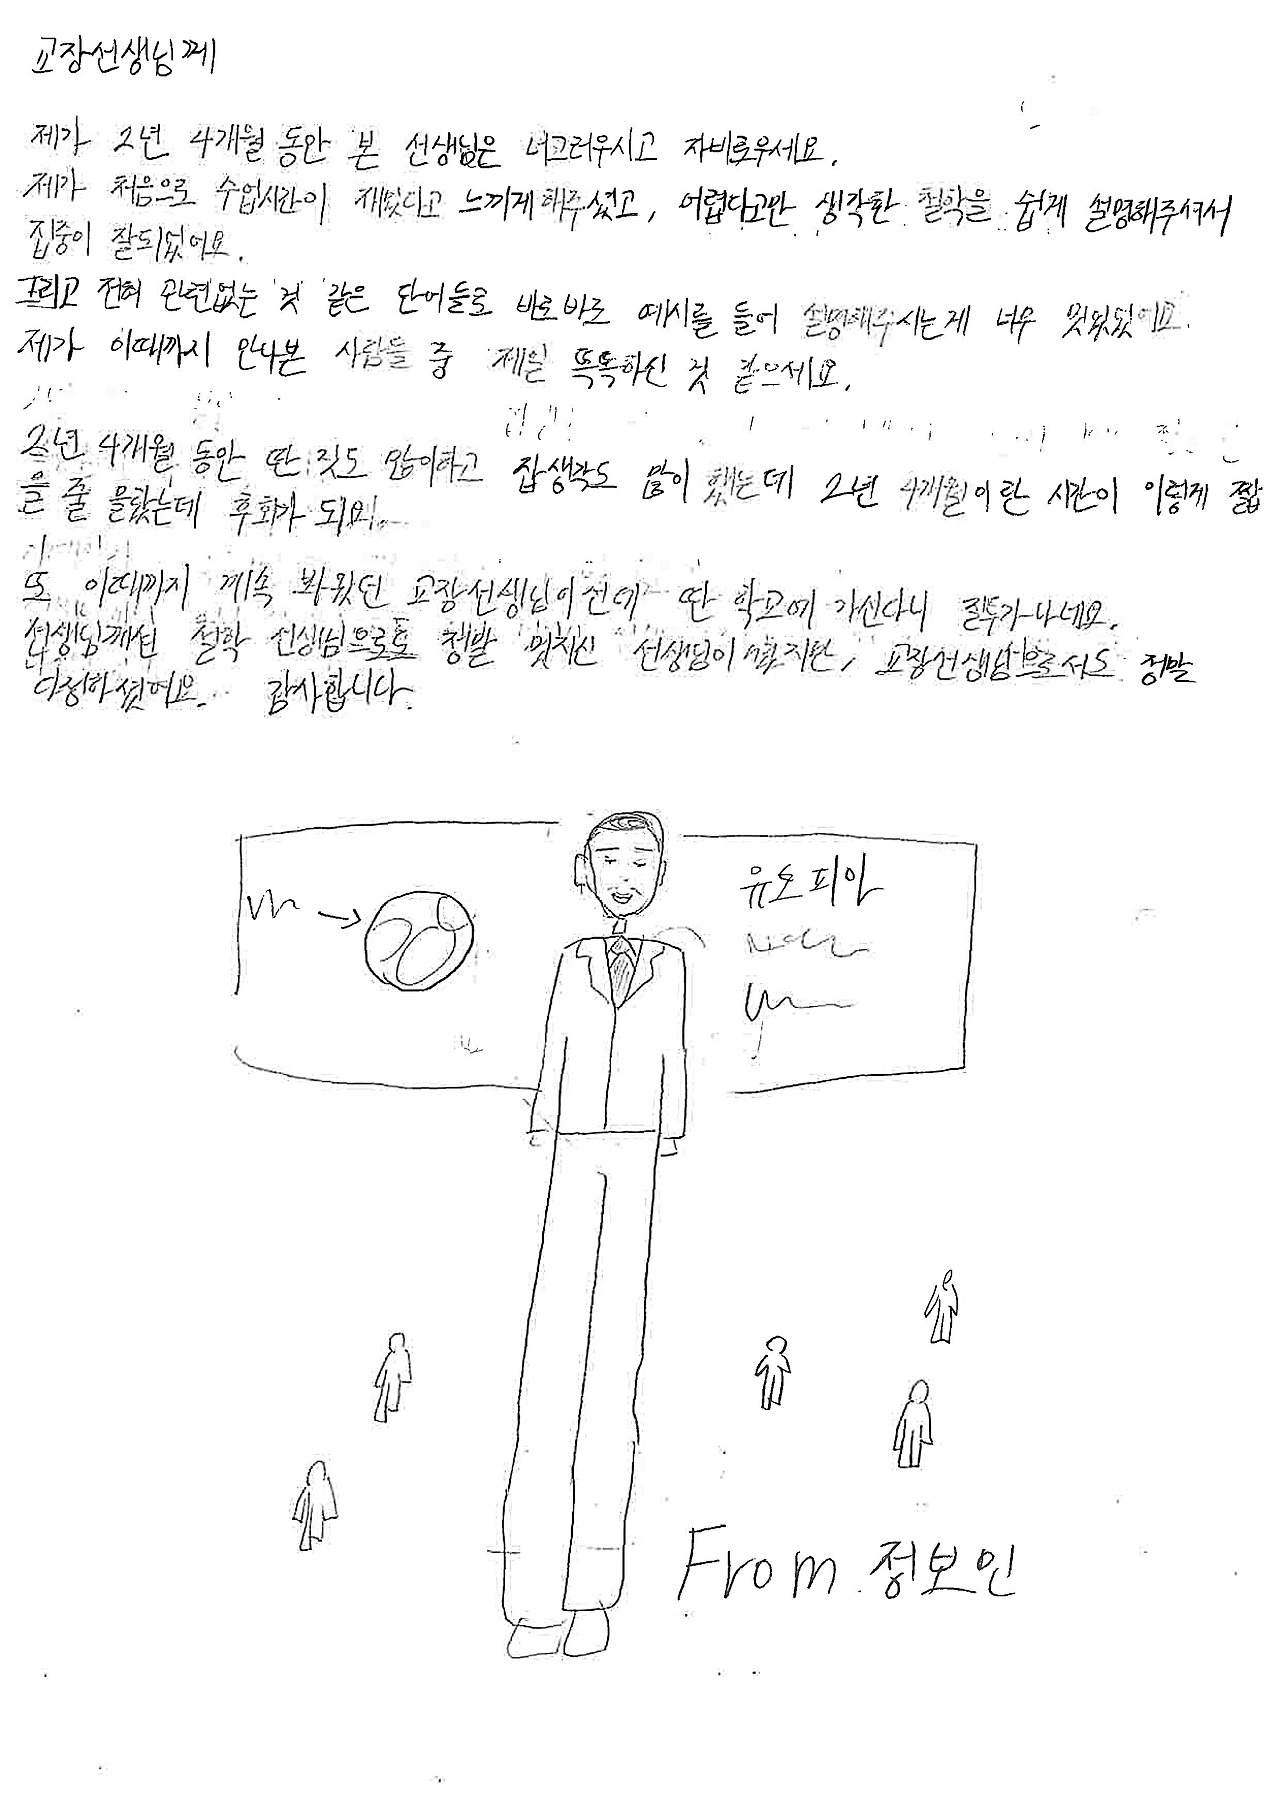 교장선생님께
제가 2년 4개월 동안 본 선생님은 너그러우시고 자비로우세요.
제가 처음으로 수업시간이 재밌다고 느끼게 해주셨고, 어렵다고만 생각한 철학을 쉽게 설명해주셔서
집중이 잘되었어요.
그리고 전혀 관련없는 것 같은 단어들로 바로바로 예시를 들어 설명해주시는게 너무 멋있었어요.
제가 이때까지 만나본 사람들 중 제일 똑똑하신 것 같으세요.
2년 4개월 동안 딴 짓도 많이하고 잡생각도 많이 했는데 2년 4개월이란 시간이 이렇게 짧
을 줄 몰랐는데 후회가 되요.
또 이때까지 계속 봐왔던 교장선생님이신데 딴 학교에 가신다니 질투가나네요.
선생님께선 철학 선생님으로도 정말 멋지신 선생님이 지만, 교장선생님으로서도 정말
다정하셨어요. 감사합니다.
유토피아
From 정보인